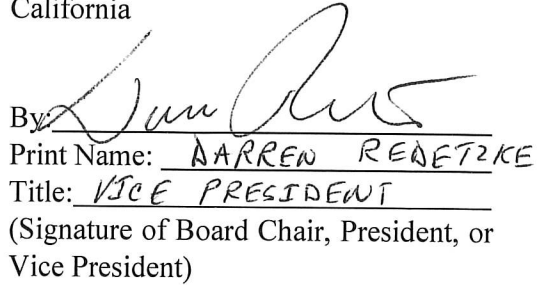 California
By:
Print Name: DARREN REDETZKE
Title: VICE PRESIDENT
(Signature of Board Chair, President, or
Vice President)